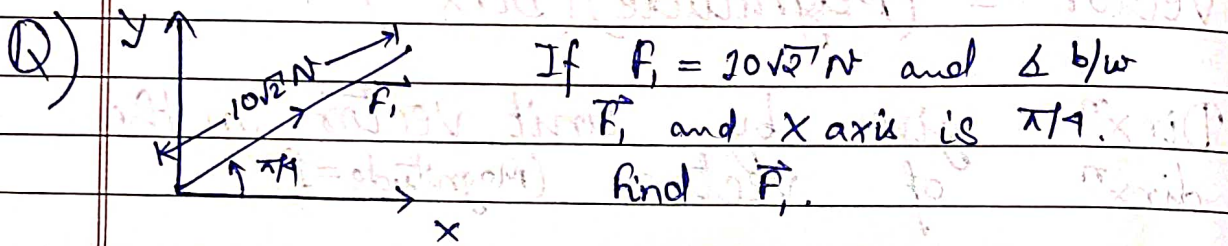 Q)
y
10√2 N
F₁
π/4
x
If F₁ = 10√2 N and ∠ b/w
F⃗₁ and X axis is π/4.
find F⃗₁.